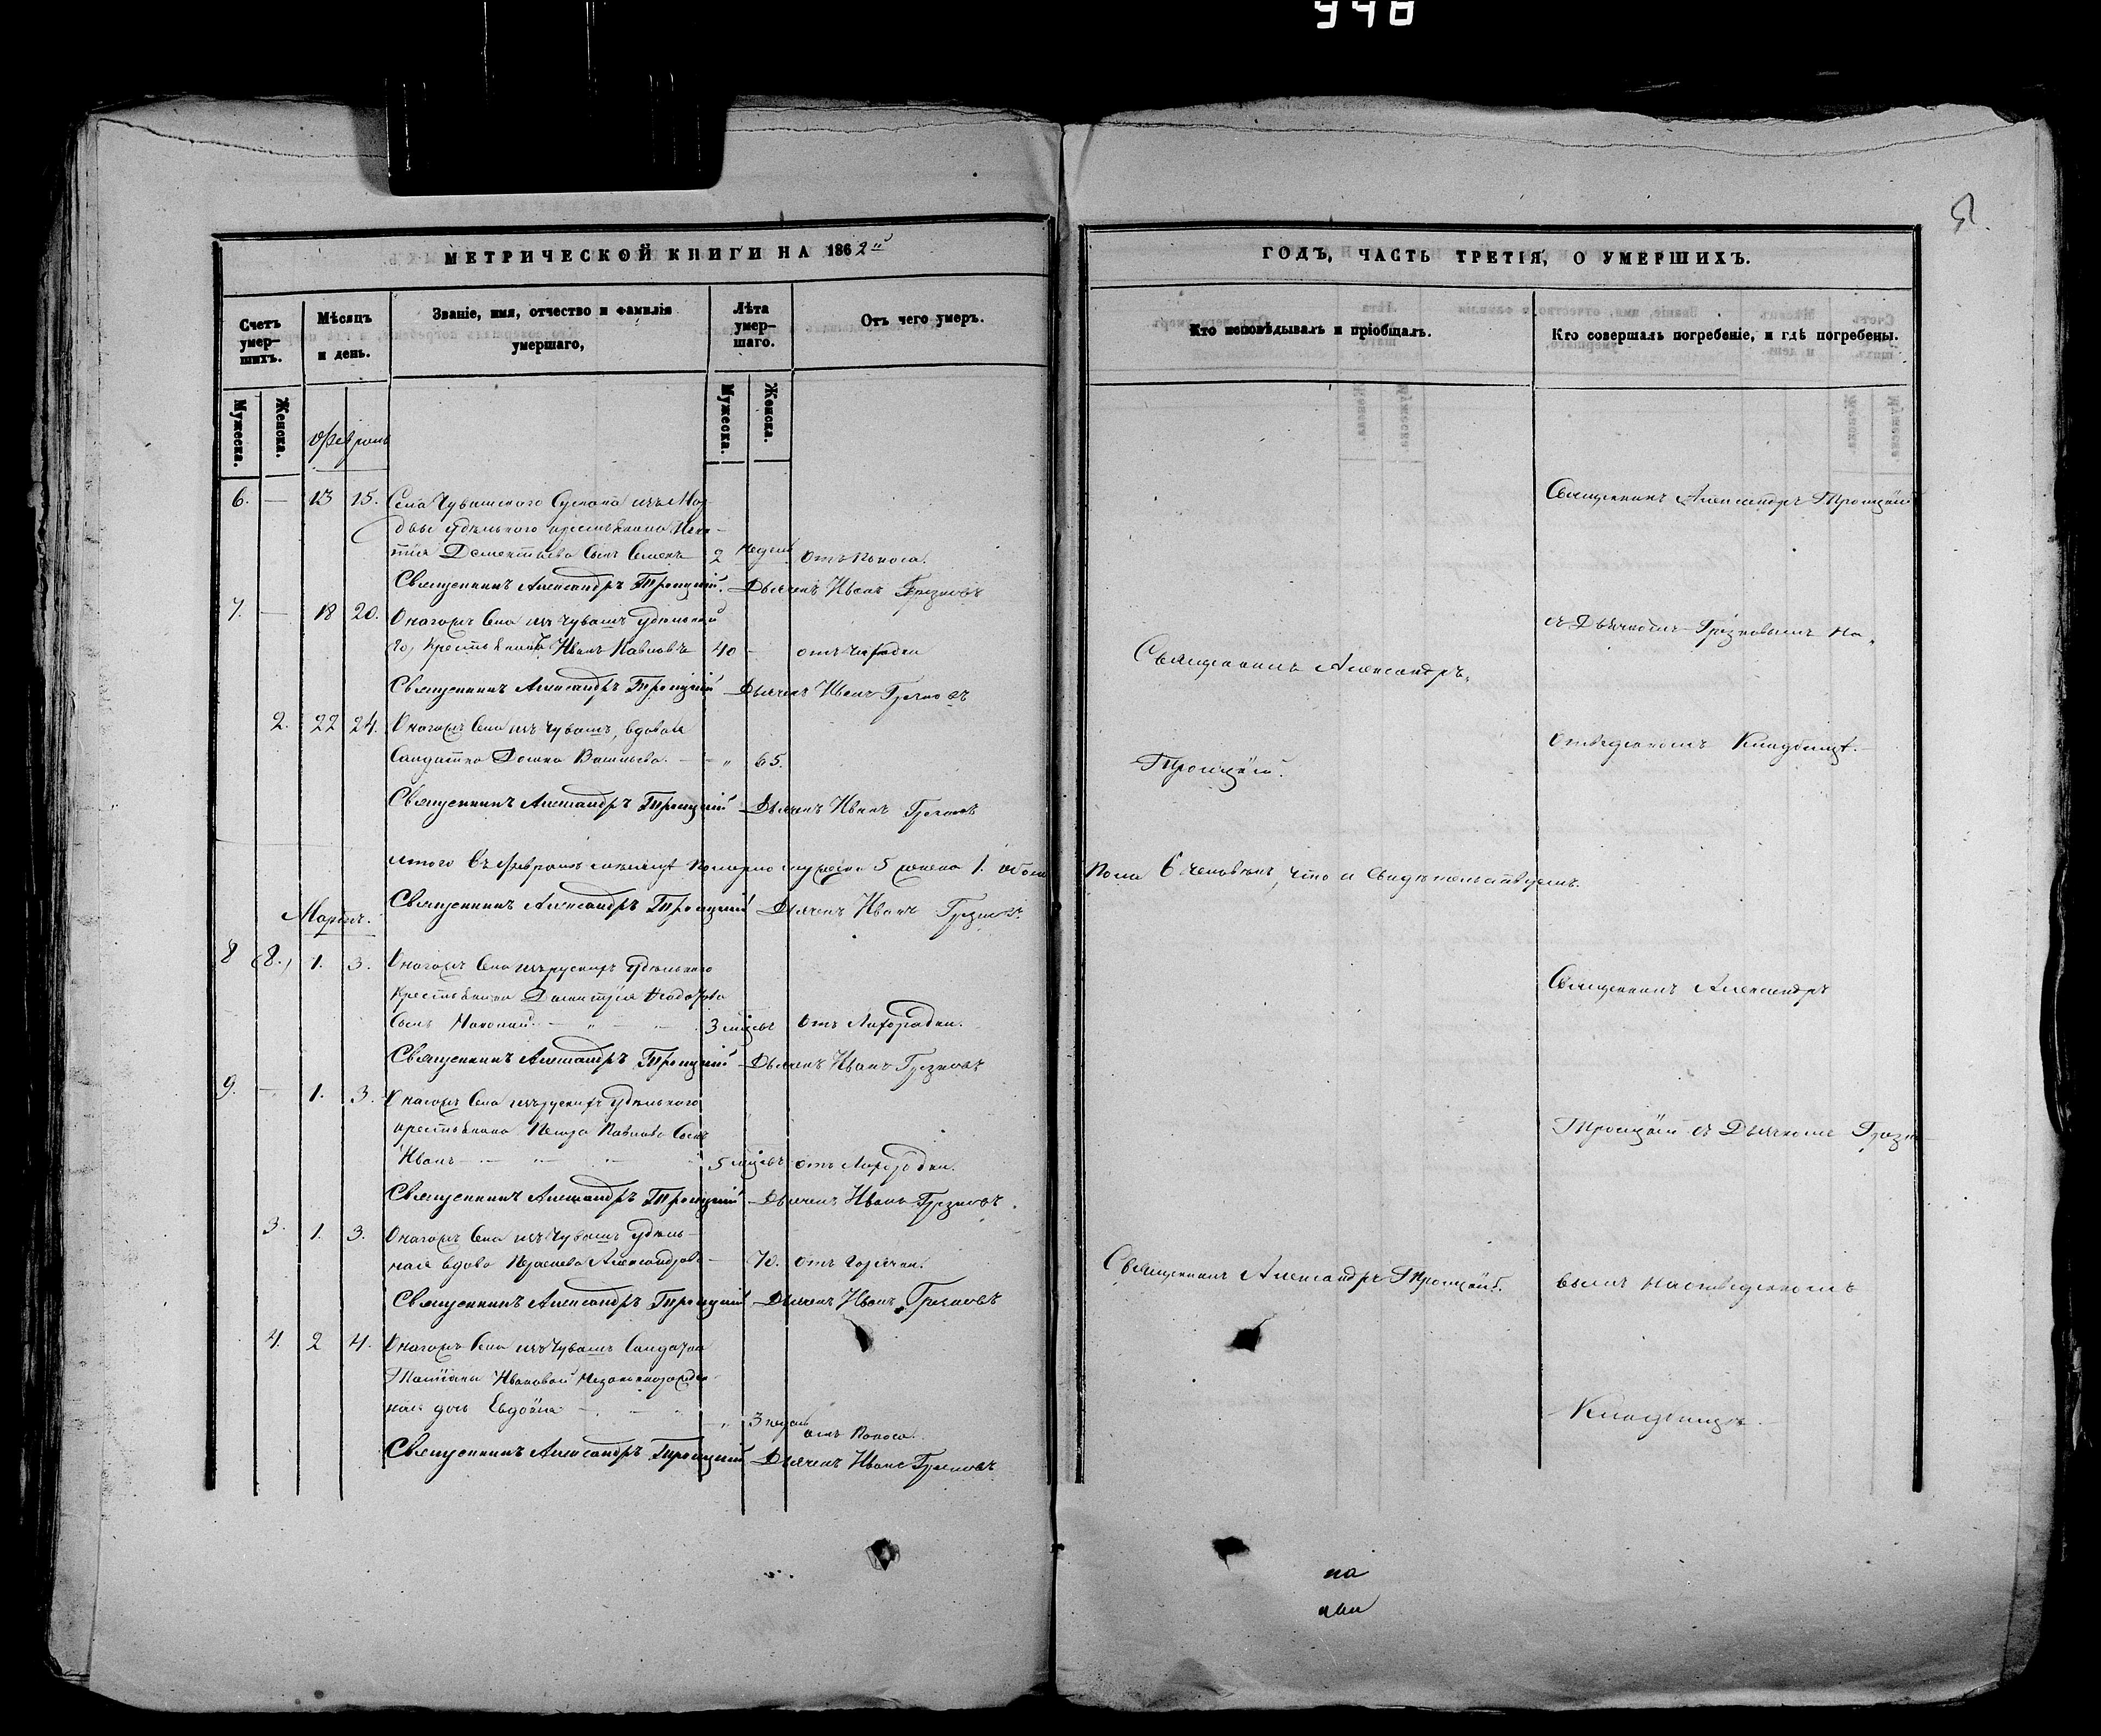 948
МЕТРИЧЕСКОЙ КНИГИ НА 1862й
Счетъ умер-шихъ.
Мѣсяцъ и день.
Званіе, имя, отчество и фамилія умершаго,
Лѣта умер-шаго.
Отъ чего умеръ.
Мужеска.
Женска.
Мужеска.
Женска.
Февраль
6. — 13 15. Села Чувашского изъ Мор-
двы удѣльного крестьянина
Дементьева сынъ Семенъ 2 недели отъ поноса.
Священникъ Александръ Троицкій. Дьячекъ Иванъ Грезновъ
7. — 18 20. Онагожъ села изъ чувашъ удѣльный
крестьянинъ Иванъ Павловъ 40 —
Священникъ Александръ Троицкій Дьячекъ Иванъ Грезновъ
2. 22 24. Онагожъ села изъ чувашъ, вдовая
Салдатка Васильева. — „ 65.
Священникъ Александръ Троицкій Дьячекъ Иванъ Грезновъ
итого въ февралѣ мѣсяцѣ померло мужеска 5 женска 1. обоего
Священникъ Александръ Троицкій Дьячекъ Иванъ Грезновъ
Мартъ.
8 (8.) 1. 3. Онагожъ села изъ рускихъ удѣльного
крестьянина сынъ 3 мѣсяцъ отъ лихорадки.
Священникъ Александръ Троицкій Дьячекъ Иванъ Грезновъ
9. — 1. 3. Онагожъ села изъ рускихъ удѣльного
крестьянина Петра Павлова сынъ
Иванъ — 5 мѣсяцъ отъ лихорадки.
Священникъ Александръ Троицкій Дьячекъ Иванъ Грезновъ.
3. 1. 3. Онагожъ села изъ чувашъ удѣль-
ная вдова Александрова — 70. отъ горячки.
Священникъ Александръ Троицкій Дьячекъ Иванъ Грезновъ
4. 2 4. Онагожъ села изъ чувашъ Салдатки
Татіаны Ивановой незаконнорожден-
ная дочь Евдокія — „ 3 недели отъ поноса.
Священникъ Александръ Троицкій Дьячекъ Иванъ Грезновъ
ГОДЪ, ЧАСТЬ ТРЕТІЯ, О УМЕРШИХЪ.
Кто исповѣдывалъ и пріобщалъ.
Кто совершалъ погребеніе, и гдѣ погребены.
Священникъ Александръ Троицкій
съ Дьячкомъ Грезновымъ на
Священникъ Александръ
отведенномъ Кладбищѣ.
Троицкій.
пола 6 человѣкъ, что и свидѣтельствуемъ.
Священникъ Александръ
Троицкій съ Дьячкомъ Грезно-
Священникъ Александръ Троицкій.
вымъ на отведенномъ
Кладбищѣ.